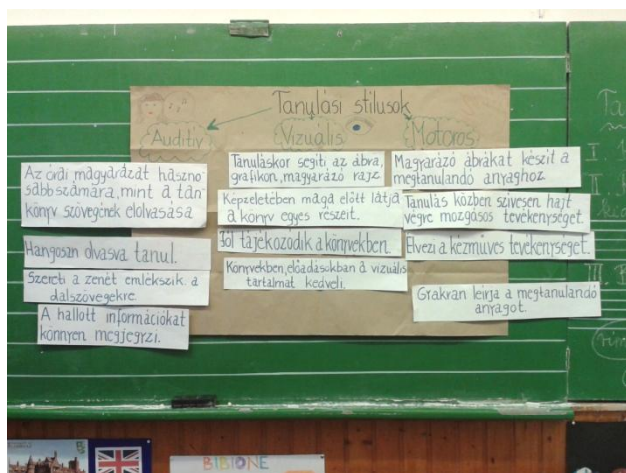 Tanulási stílusok
Auditív
Az órai magyarázat haszno-
sabb számára, mint a tan-
könyv szövegének elolvasása
Hangosan olvasva tanul.
Szereti a zenét emlékszik a
dalszövegekre.
A hallott információkat
könnyen megjegyzi.
Vizuális
Tanuláskor segíti az ábra,
grafikon, magyarázó rajz
Képzeletében maga előtt látja
a könyv egyes részeit.
Jól tájékozódik a könyvekben.
Könyvekben, előadásokban a vizuális
tartalmat kedveli.
Motoros
Magyarázó ábrákat készít a
megtanulandó anyaghoz.
Tanulás közben szívesen hajt
végre mozgásos tevékenységet.
Élvezi a kézműves tevékenységet.
Gyakran leírja a megtanulandó
anyagot.
I
II
III.
BIBIONE